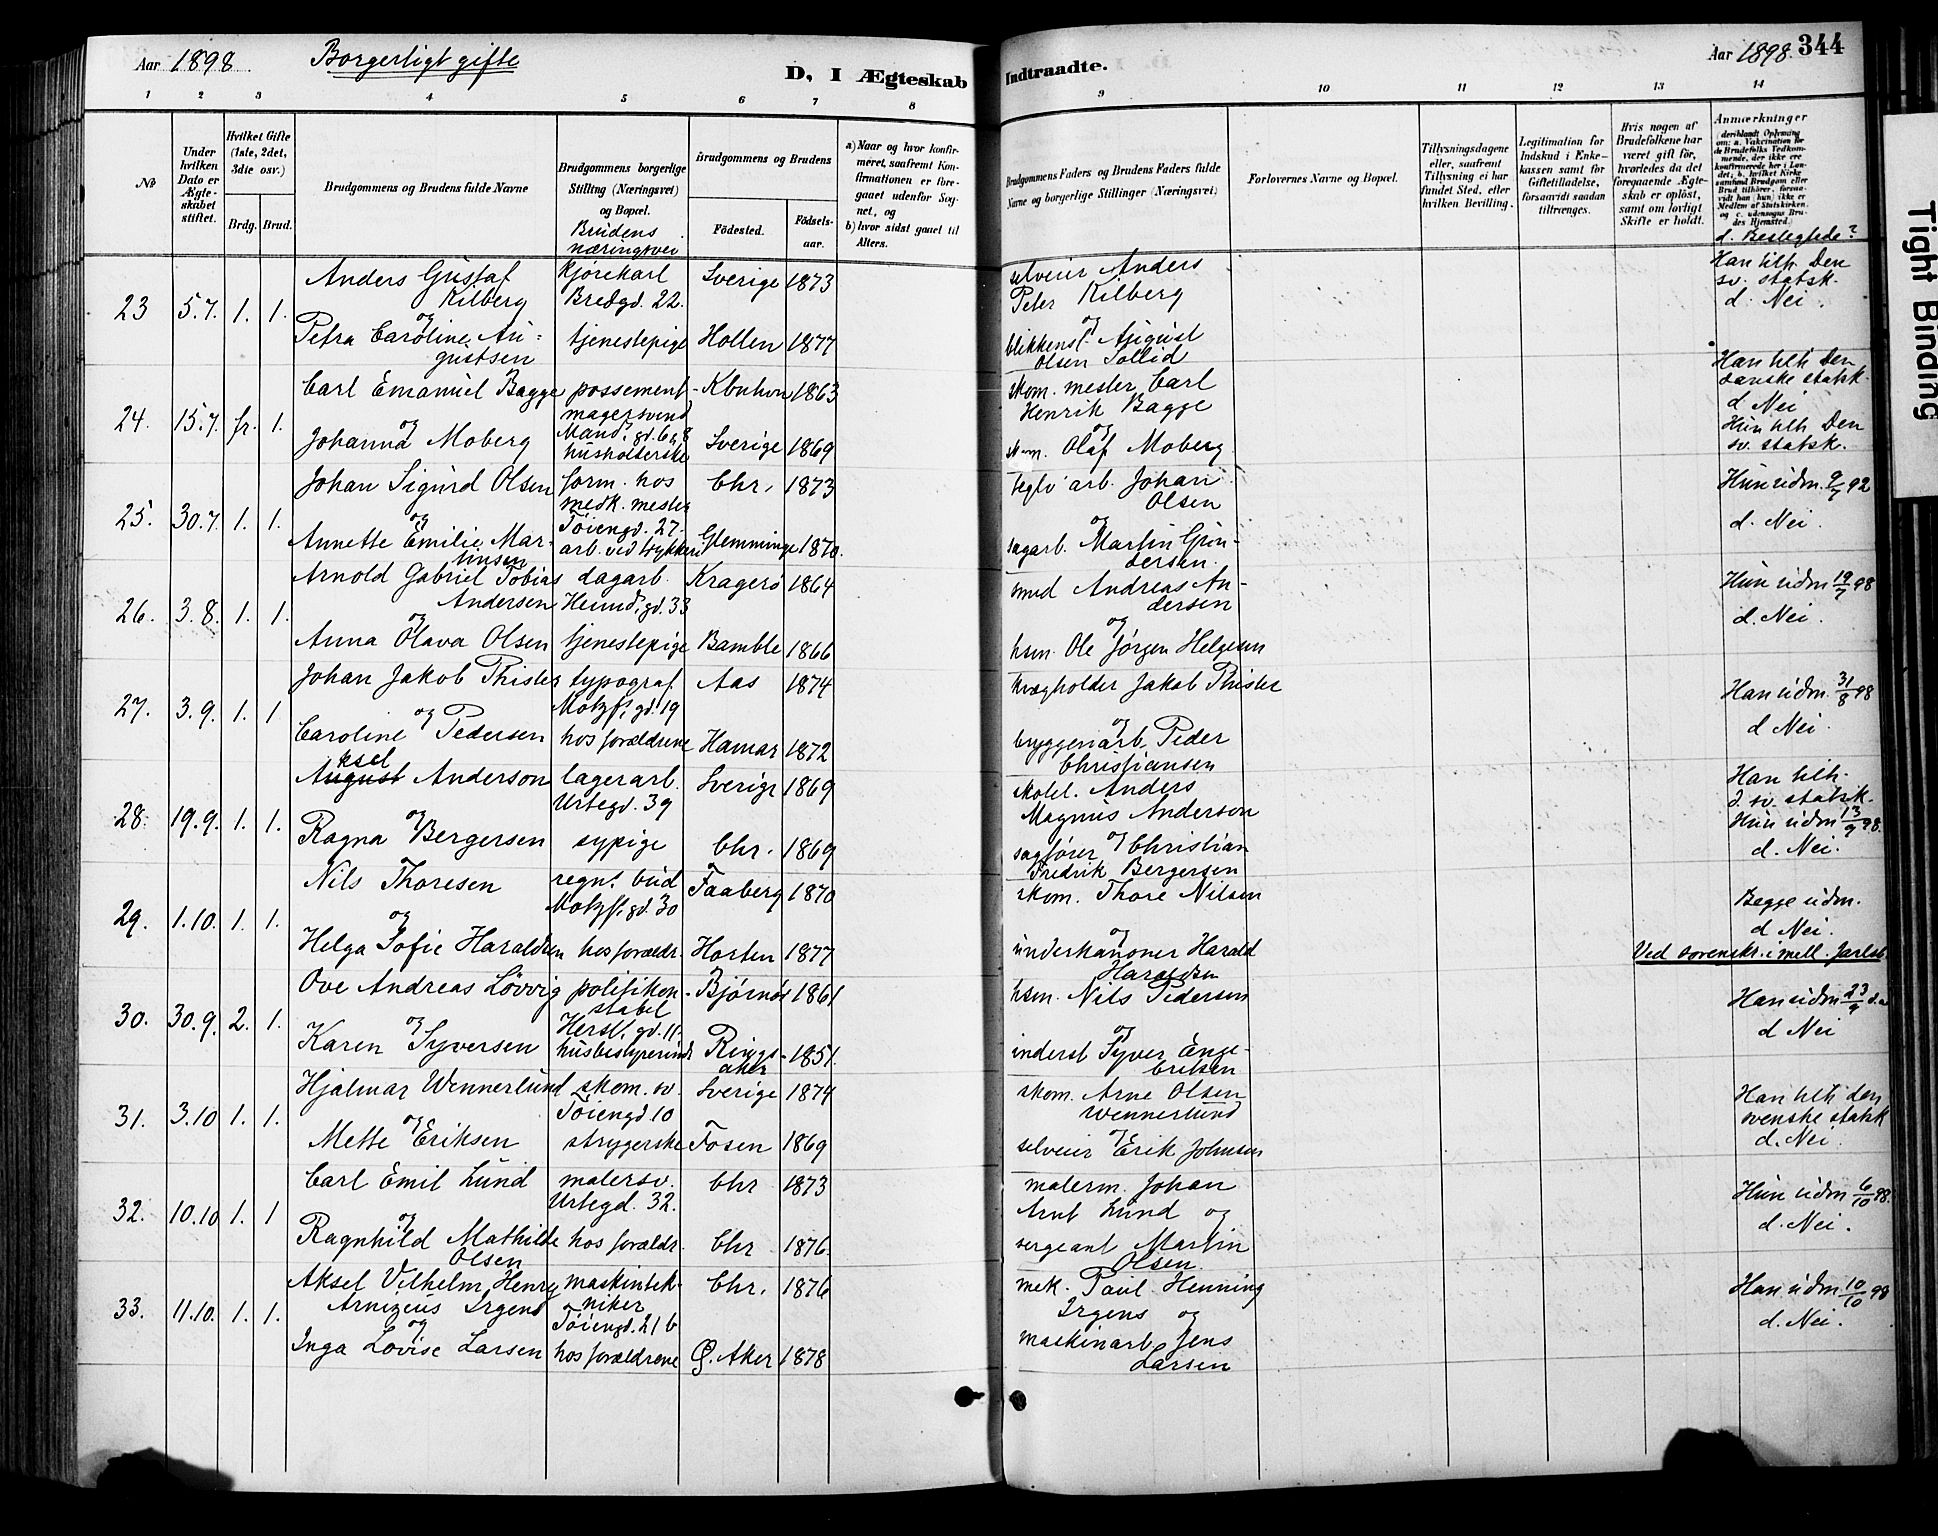 Aar 1898. Borgerligt gifte D, I Ægteskab
1 2 3 4 5 6 7 8
No
Under hvilken Dato er Ægteskabet stiftet.
Hvilket Gifte (1ste, 2det, 3die osv.)
Brdg. Brud.
Brudgommens og Brudens fulde Navne
Brudgommens borgerlige Stilling (Næringsvei) og Bopæl.
Brudens næringsvei
Brudgommens og Brudens
Födested. Födsels-aar.
a) Naar og hvor konfirmeret, saafremt Konfirmationen er foregaaet udenfor Sognet, og
b) hvor sidst gaaet til Alters.
23 5.7. 1. 1. Anders Gustaf Kilberg kjørekarl Bredgd. 22. Sverige 1873
og
Petra Caroline Augustsen tjenestepige Hollen 1877
24. 15.7. fr. 1. Carl Emanuel Bagge possementmagersvend Mand. gd. 6 Kbnhvn 1863
og
Johanna Moberg husholderske Sverige 1869
25. 30.7. 1. 1. Johan Sigurd Olsen form. hos mek. mester Töiengd. 27. Chr. 1873
og
Annette Emilie Martinsen arb. ved trykkeri Glemminge 1870.
26. 3.8. 1. 1. Arnold Gabriel Tobias Andersen dagarb. Heimd. gd. 33 Kragerö 1864
og
Anna Olava Olsen tjenestepige Bamble 1866
27. 3.9. 1. 1 Johan Jakob Thister typograf Motzf. gd. 19 Aas 1874
og
Caroline Pedersen hos forældrene Hamar 1872
28. 19.9. 1. 1. August ksel Anderson lagerarb. Urtegd. 39 Sverige 1869
og
Ragna Bergersen sypige Chr. 1869
29. 1.10. 1. 1. Nils Thoresen regnt. bud Motzf. gd. 30 Faaberg 1870
og
Helga Sofie Haraldsen hos forældr. Horten 1877
30. 30.9. 2. 1. Ove Andreas Lövvig politikonstabel Hersl. gd. 11. Bjørnör 1861
og
Karen Syversen husbestyrerinde Ringsaker 1851.
31. 3.10 1. 1. Hjalmar Wennerlund skom. sv. Töiengd 10 Sverige 1874
og
Mette Eriksen strygerske Fosen 1869
32. 10.10 1. 1 Carl Emil Lund malersv. Urtegd. 32. Chr 1873
og
Ragnhild Mathilde Olsen hos forældr. Chr 1876.
33. 11.10. 1. 1. Aksel Vilhelm Henry Arnizeus Irgens maskintekniker Töiengd. 21 b Chr. 1876
og
Inga Lovise Larsen hos forældrene Ø. Aker 1878
Indtraadte. Aar 1898. 344
9 10 11 12 13 14
Brudgommens Faders og Brudens Faders fulde Navne og borgerlige Stillinger (Næringsvei)
Forlovernes Navne og Bopæl.
Tillysningsdagene eller, saafremt Tillysning ei har fundet Sted, efter hvilken Bevilling.
Legitimation for Indskud i Enkekassen samt for Giftetilladelse, forsaavidt saadan tiltrænges.
Hvis nogen af Brudefolkene har været gift för, hvorledes da det foregaaende Ægteskab er oplöst, samt om lovligt Skifte er holdt.
Anmærkninger
(deriblandt Oplysning om: a. Vaccination for de Brudefolks Vedkommende, der ikke ere konfirmerede her i Landet; b. hvilket Kirkesamfund Brudgom eller Brud tilhörer, forsaavidt han (hun) ikke er Medlem af Statskirken, og c. udensogns Brudes Hjemsted.
d. Beslegtede?
selveier Anders Peter Kilberg
og
blikkensl. August Olsen Sollid
Han tilh. Den sv. statsk.
d. Nei.
skom. mester Carl Henrik Bagge
og
skom. Olaf Moberg
Han tilh. Den danske statsk.
d Nei
Hun tilh. Den sv. statsk.
teglv. arb. Johan Olsen
og
sagarb. Martin Gundersen.
Hun udm. 9/7 92
d. Nei.
smed Andreas Andersen
og
hsm. Ole Jørgen Helgesen
Hun udm 19/7 98
d. Nei.
kvægholder Jakob Thister
og
bryggeriarb. Peder Christiansen
Han udm. 31/8 98
d Nei.
skolel. Anders Magnus Anderson
og
sagfører Christian Fredrik Bergersen
Han tilh. d. sv. statsk.
Hun udm 13/9 98.
d. Nei.
skom. Thore Nilsen
og
underkanoner Harald Haraldsen
Begge udm.
d Nei.
Ved sorenskr. i mell. Jarlsb.
hsm. Nils Pedersen
og
inderst Syver Engebriksen
Han udm 23/9 d.a
d Nei
skom. Arne Olsen Wennerlund
og
selveier Erik Johnsen
Han tilh den svenske statsk
d. Nei.
malerm. Johan Arnt Lund og
sergeant Martin Olsen.
Hun udm 6/10 98.
d. Nei.
mek. Paul Henning Irgens og
maskinarb. Jens Larsen
Han udm 10/10 98
d. Nei.
Tight Binding